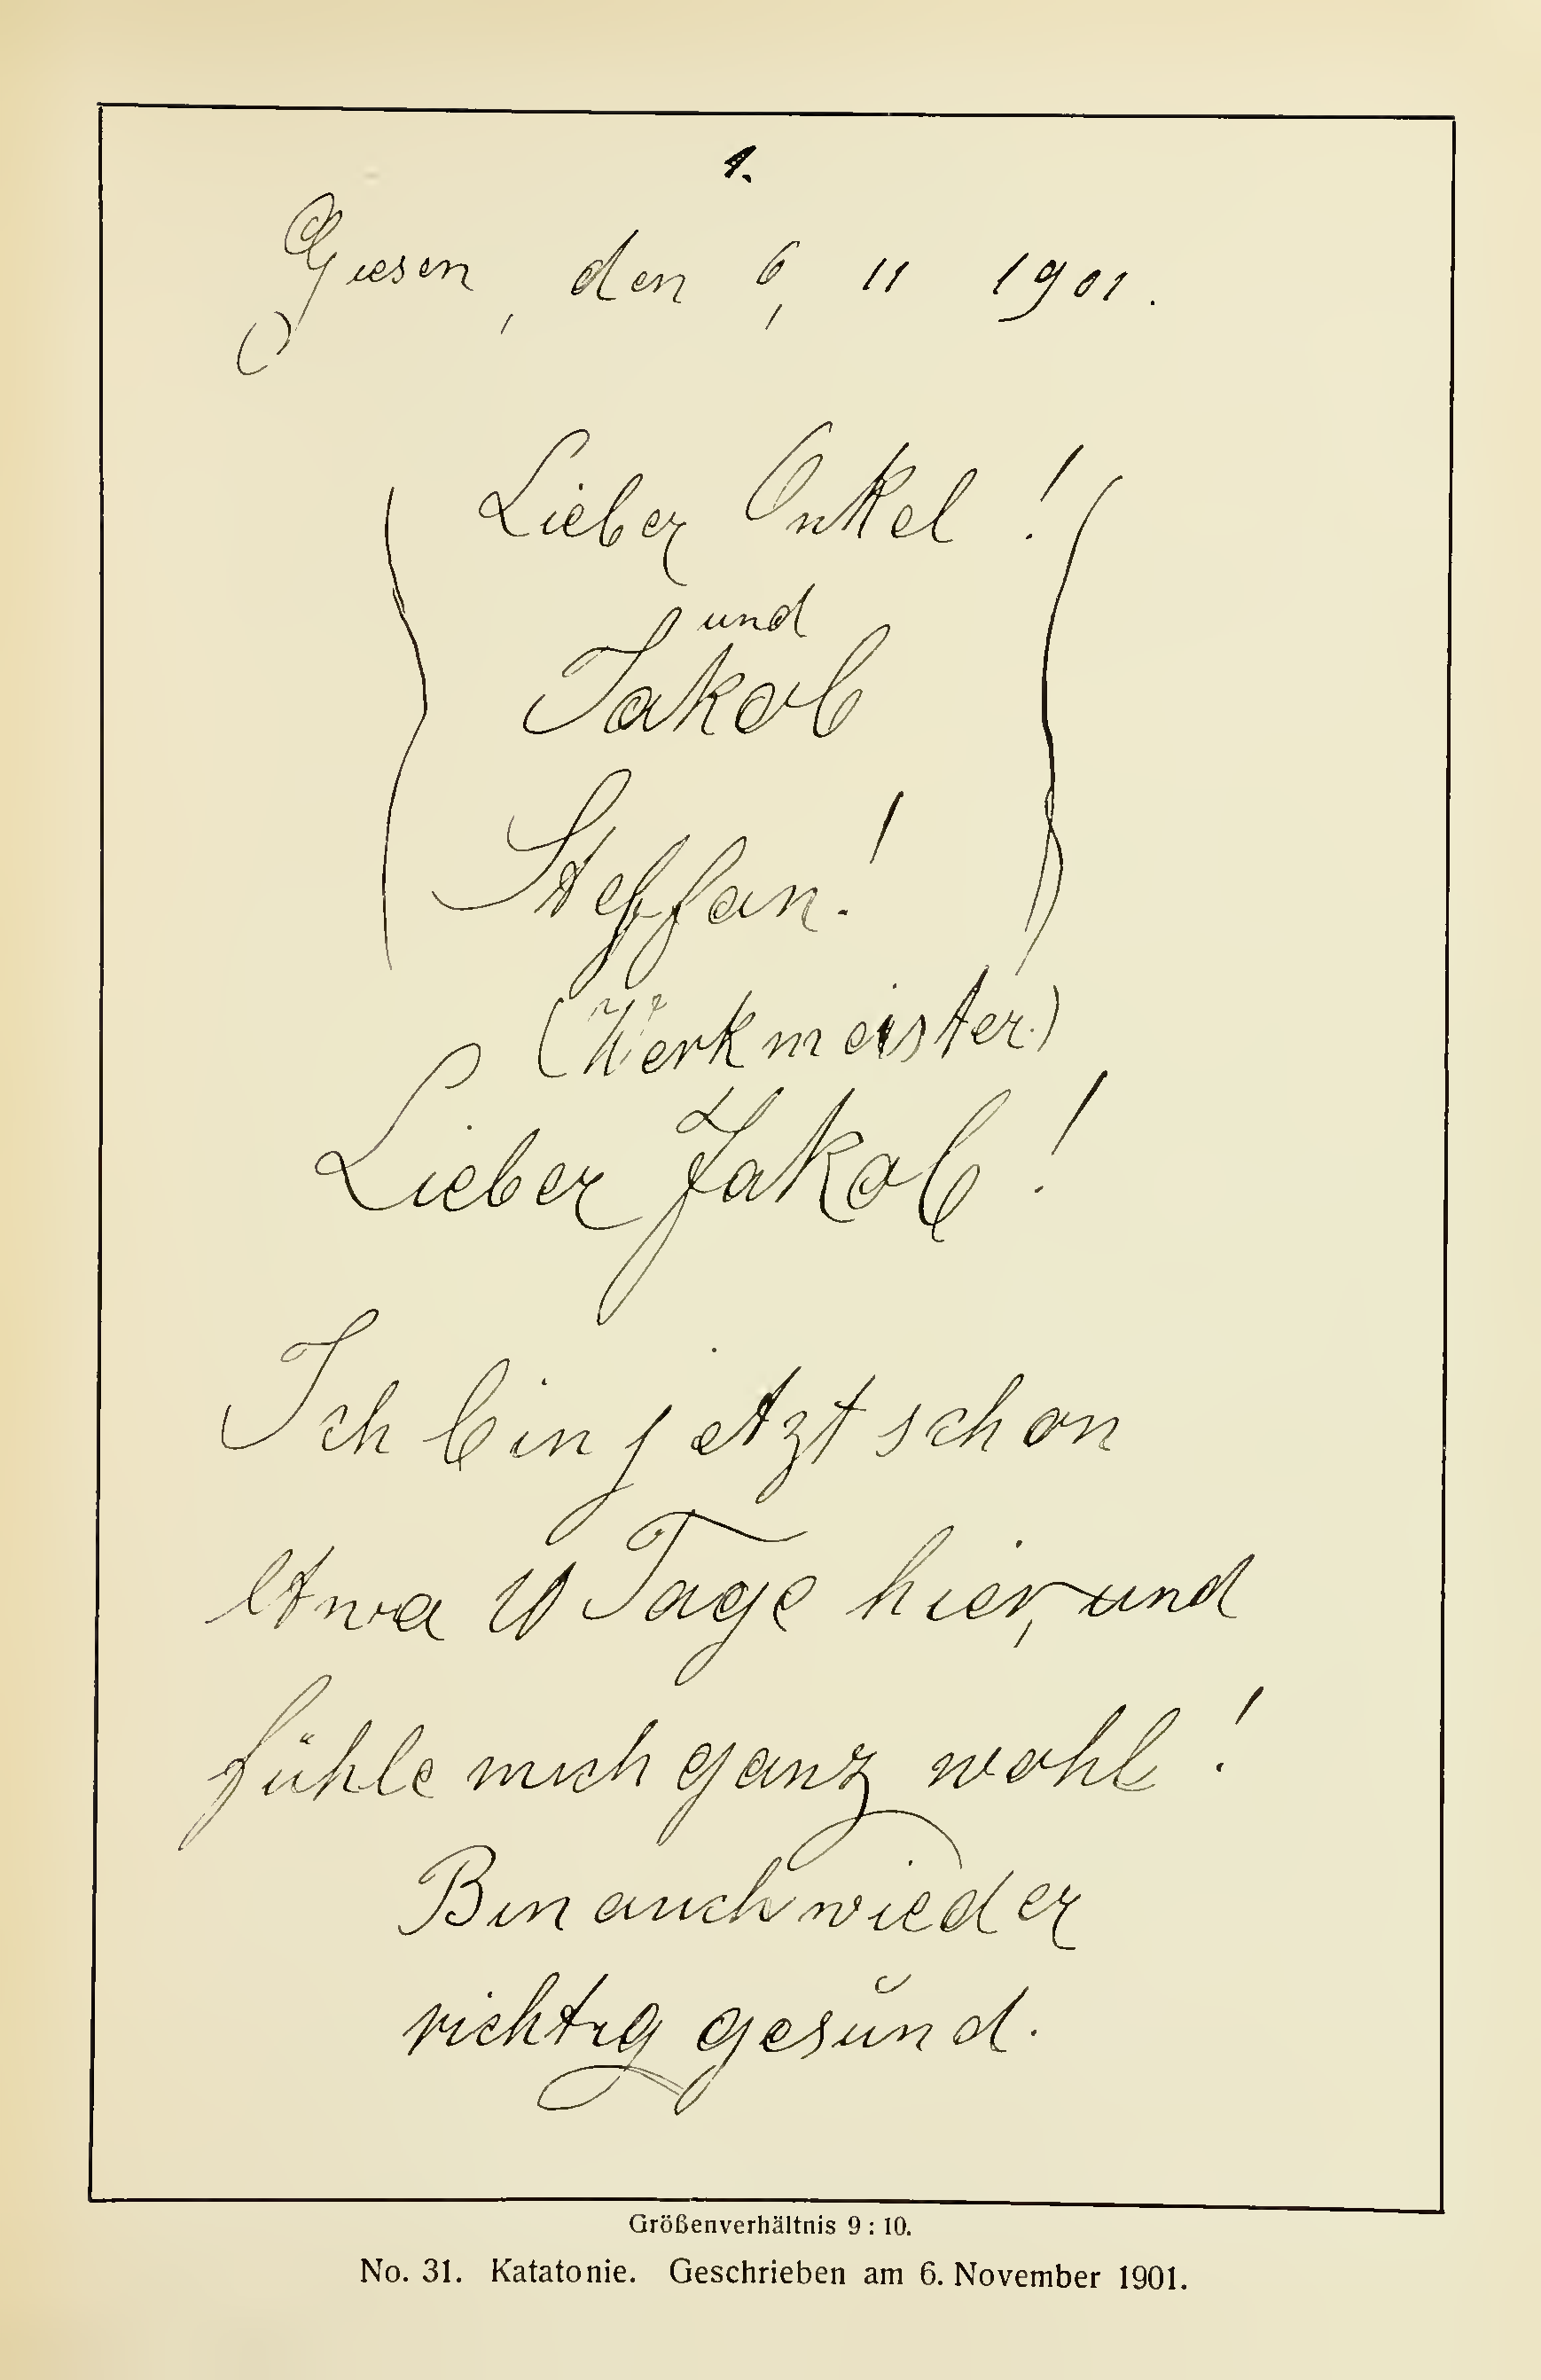 1.
Giesen, den 6, 11 1901.
Lieber Onkel!
und
Jakob
Steffan!
(Werkmeister.)
Lieber Jakob!
Ich bin jetzt schon
etwa 10 Tage hier, und
fühle mich ganz wohl!
Bin auch wieder
richtig gesund.
Größenverhältnis 9 : 10.
No. 31. Katatonie. Geschrieben am 6. November 1901.